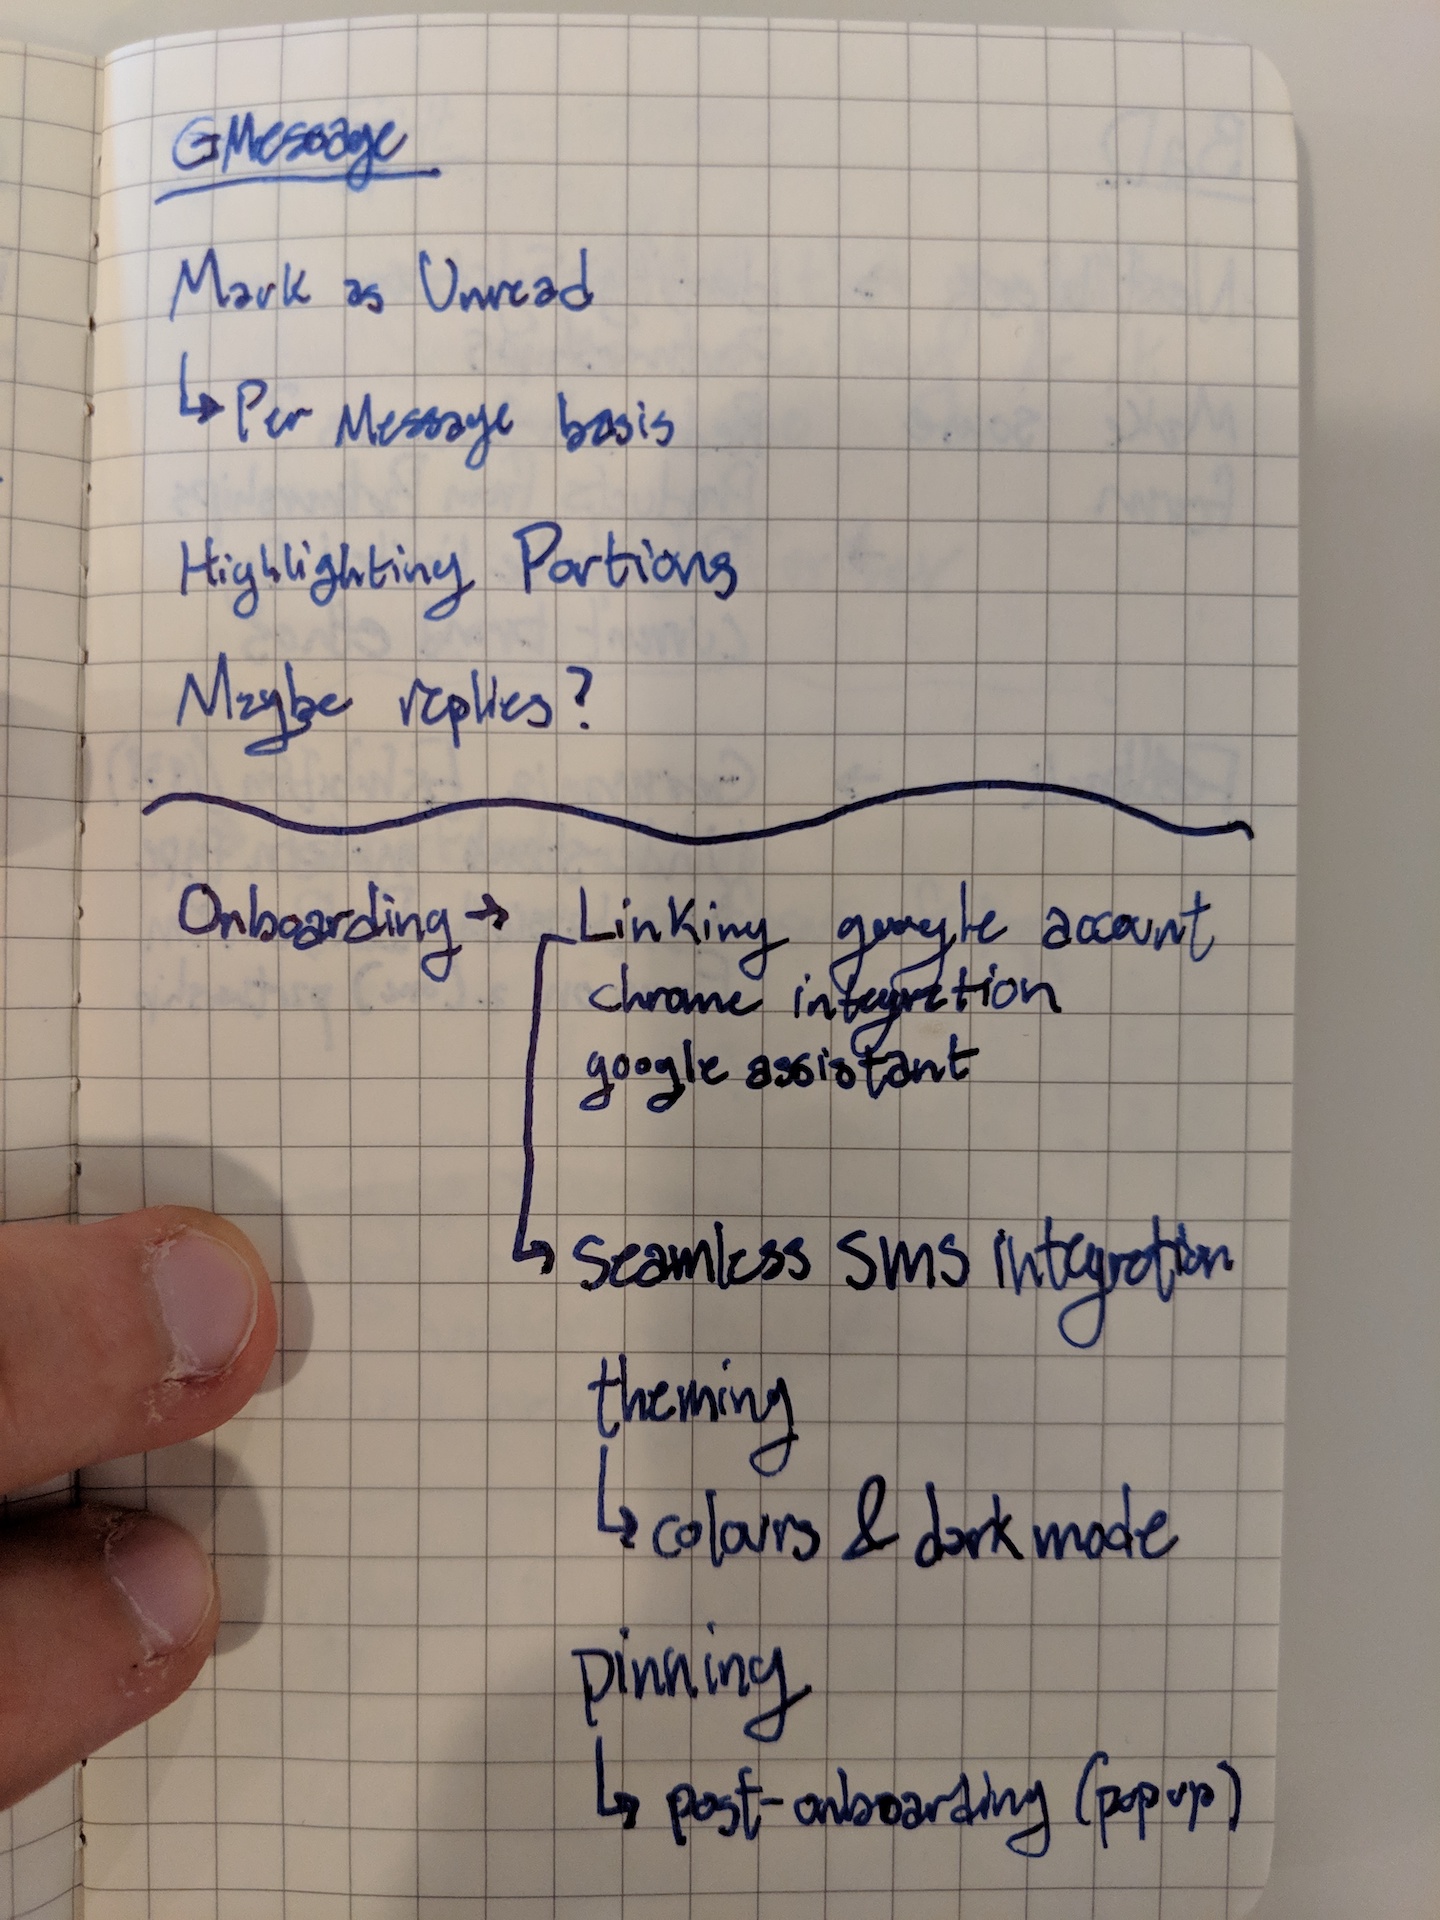 GMessage
Mark as Unread
↳ Per Message basis
Highlighting Portions
Maybe replies?
Onboarding → Linking google account
chrome integration
google assistant
↳ seamless SMS integration
theming
↳ colours & dark mode
pinning
↳ post-onboarding (popup)